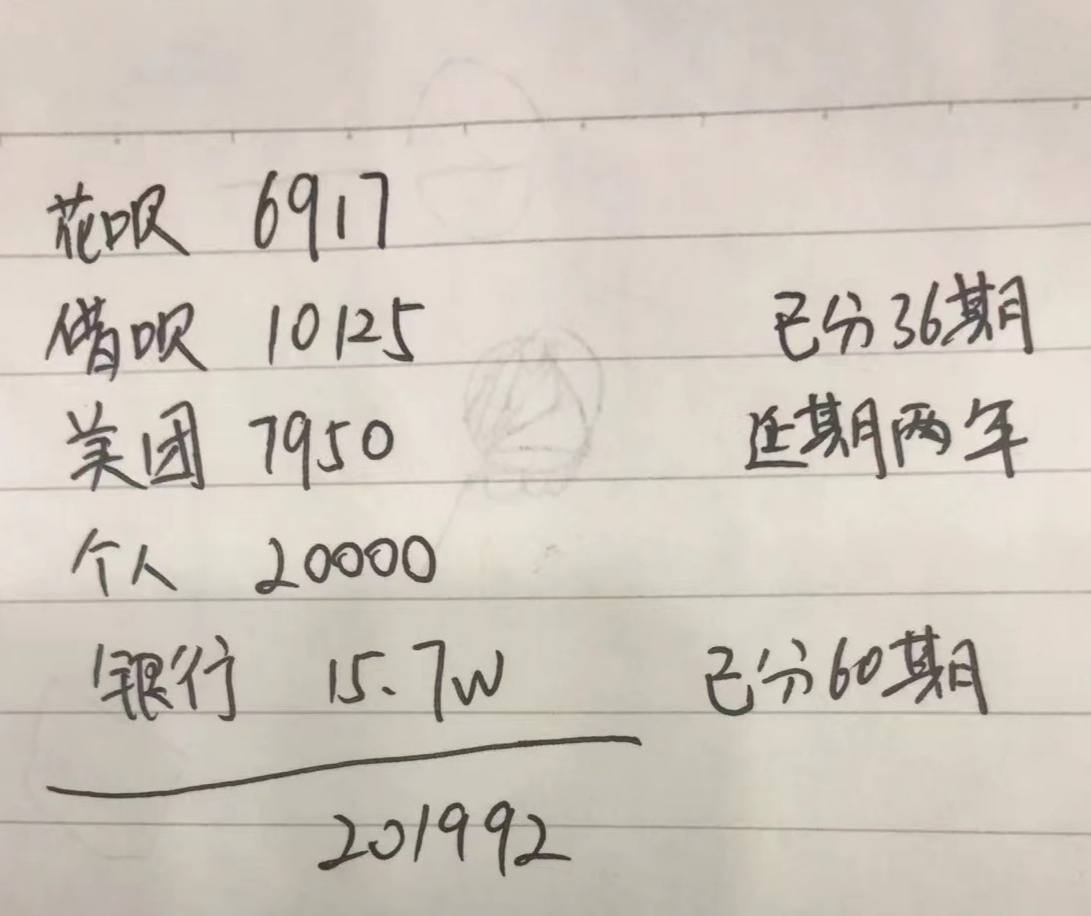 花呗 6917
借呗 10125 已分36期
美团 7950 延期两年
个人 20000
银行 15.7W 已分60期
201992